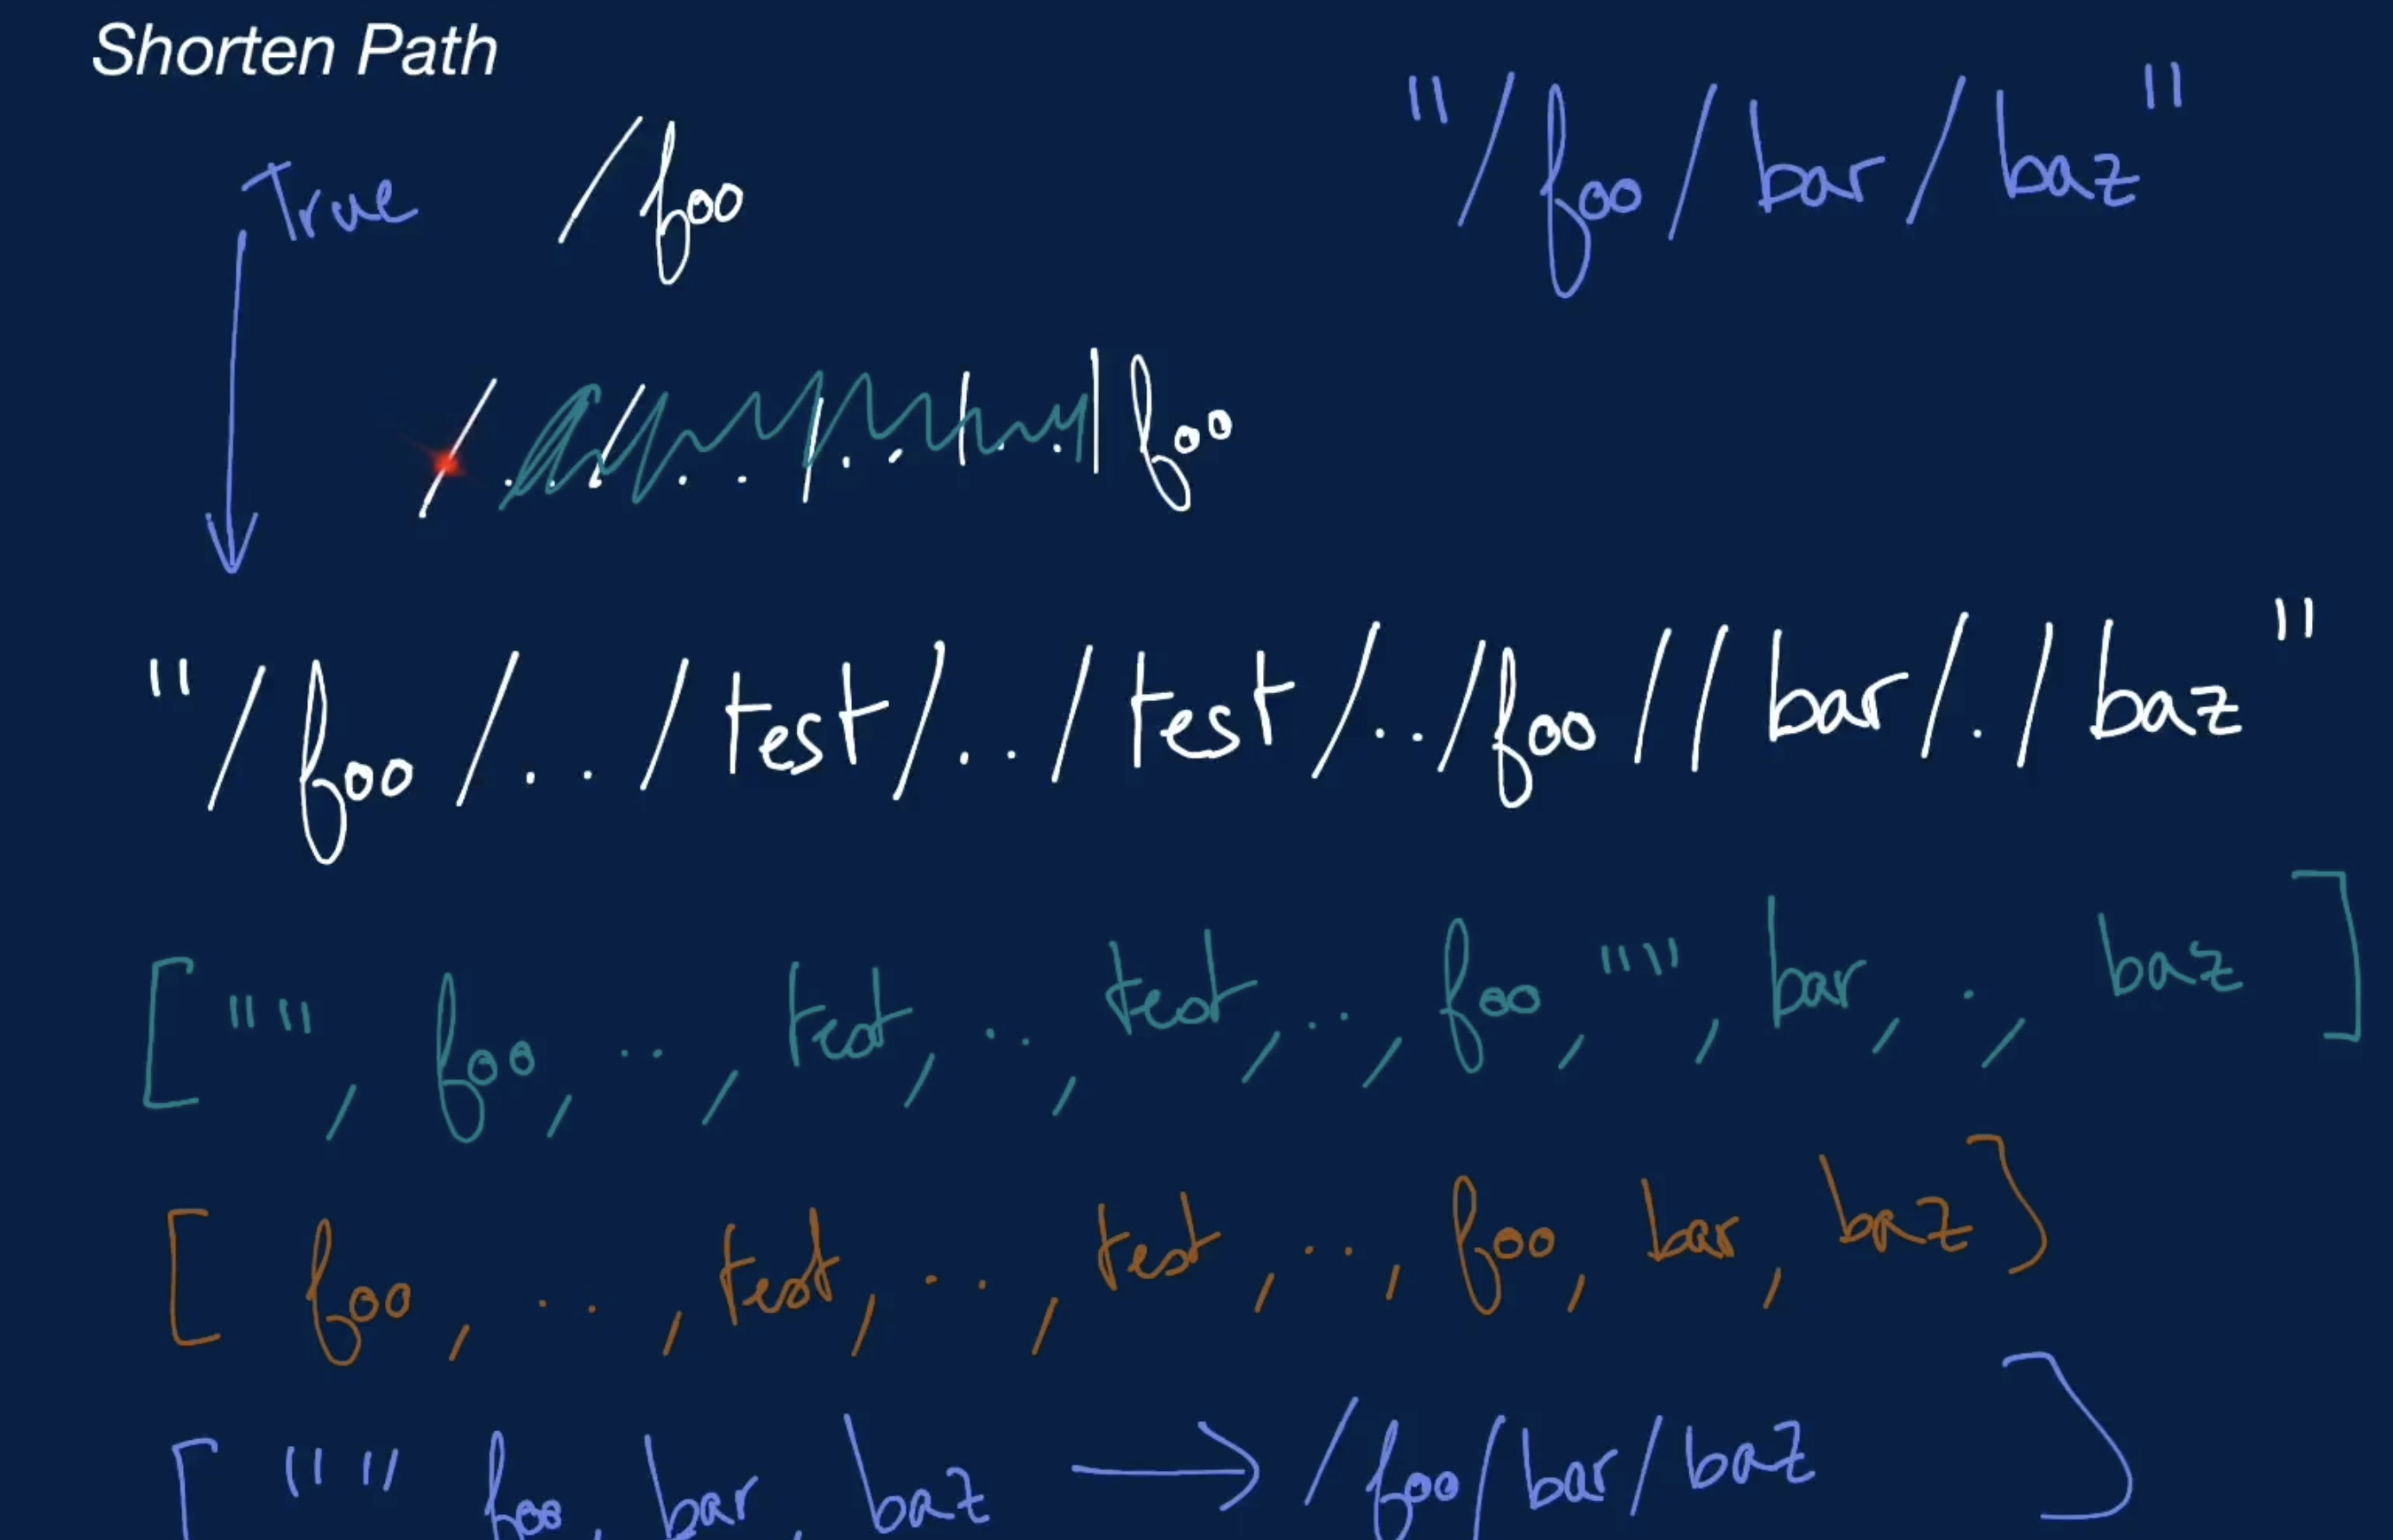 Shorten Path
"/foo/bar/baz"
True /foo
/../../../../foo
"/foo/../test/../test/../foo//bar/./baz"
["", foo, .., test, .., test, .., foo, "", bar, ., baz]
[foo, .., test, .., test, .., foo, bar, baz]
["" foo, bar, baz → /foo/bar/baz ]